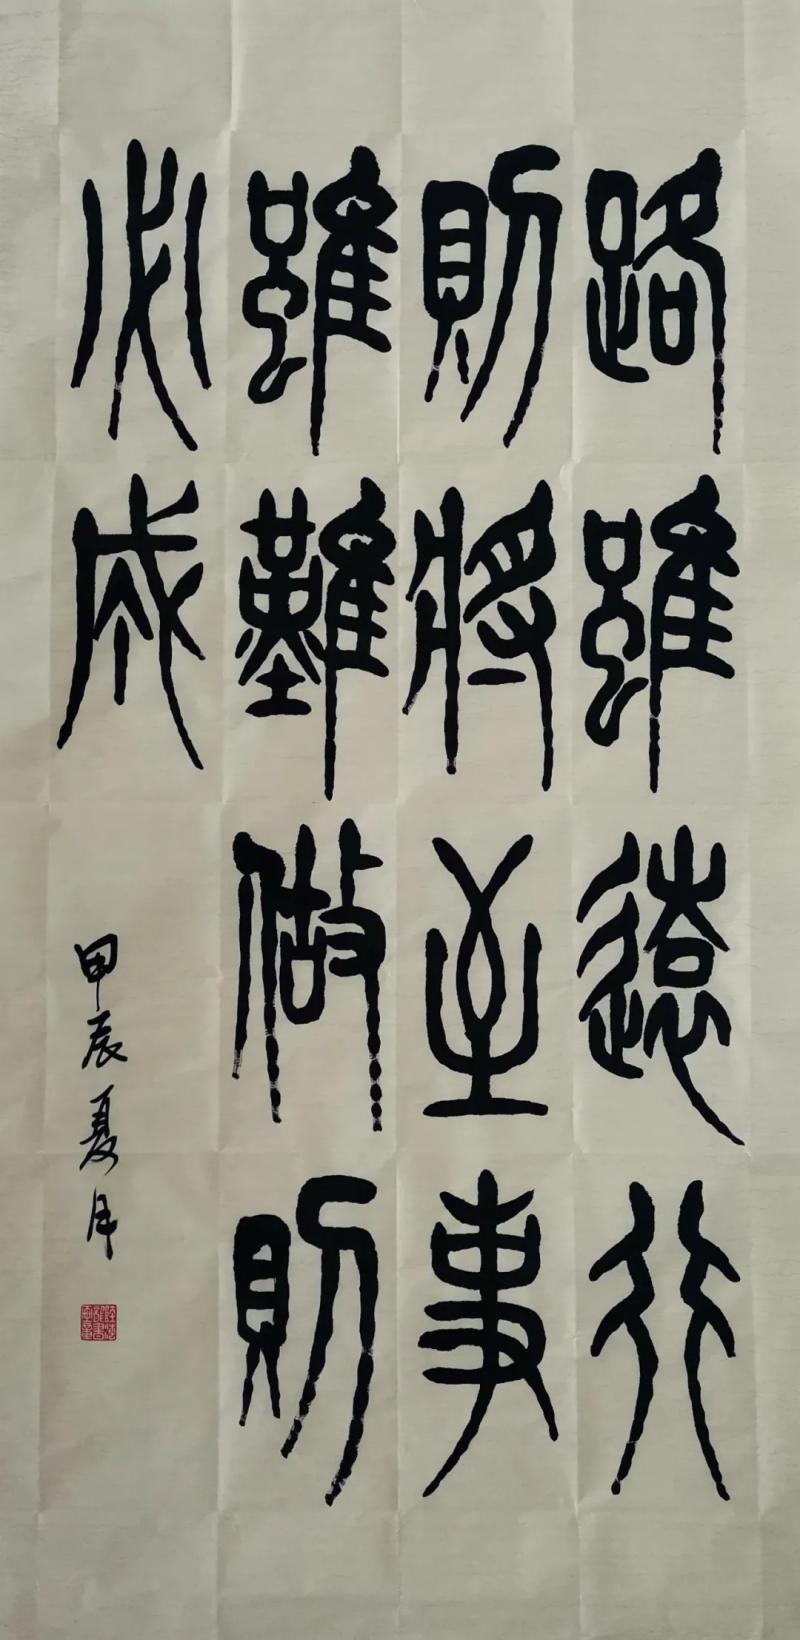 路雖遠行
則將至事
雖難做則
必成
甲辰夏月